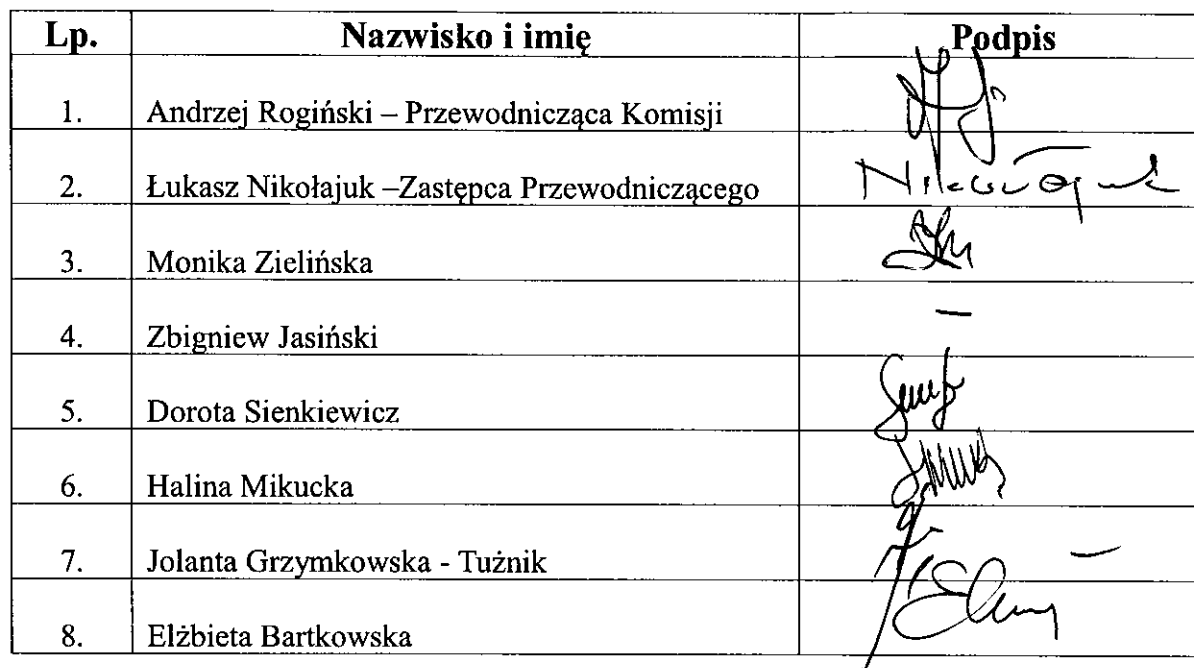 Lp. Nazwisko i imię Podpis
1. Andrzej Rogiński – Przewodnicząca Komisji
2. Łukasz Nikołajuk –Zastępca Przewodniczącego
3. Monika Zielińska
4. Zbigniew Jasiński –
5. Dorota Sienkiewicz
6. Halina Mikucka
7. Jolanta Grzymkowska - Tużnik –
8. Elżbieta Bartkowska